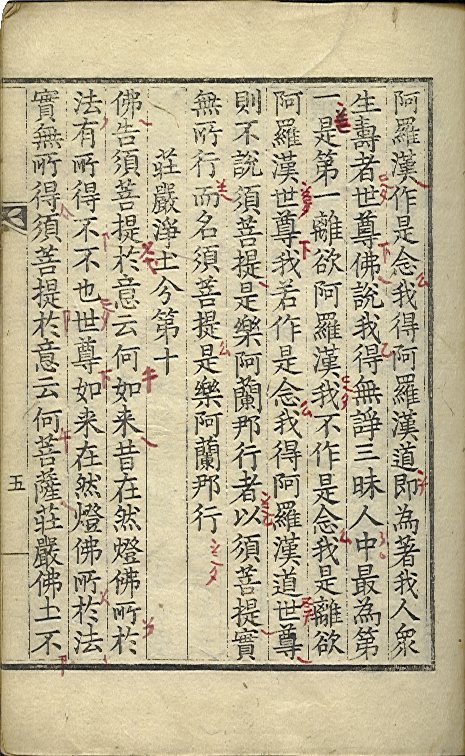 阿羅漢作是念我得阿羅漢道即為著我人衆
生壽者世尊佛說我得無諍三昧人中最為第
一是第一離欲阿羅漢我不作是念我是離欲
阿羅漢世尊我若作是念我得阿羅漢道世尊
則不說須菩提是樂阿蘭那行者以須菩提實
無所行而名須菩提是樂阿蘭那行
莊嚴淨土分第十
佛告須菩提於意云何如来昔在然燈佛所於
法有所得不不也世尊如来在然燈佛所於法
實無所得須菩提於意云何菩薩莊嚴佛土不
五